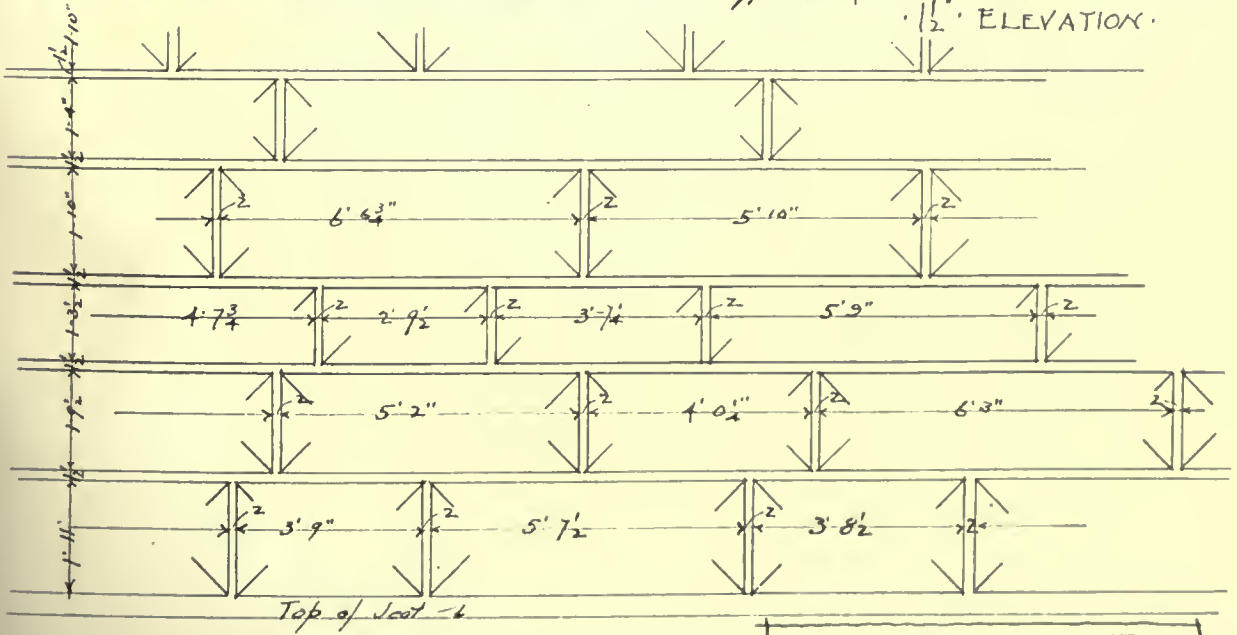 1½" ELEVATION.
1½ 1'-10"
1'-4"
1½
1'-10" 2 6' 6¾" 2 5' 10" 2
1½
1'-3½ 4'-7¾ 2 2' 9½ 2 3'-7¼ 2 5' 9" 2
1½
1'-9½ 2 5' 2" 2 4' 0¼" 2 6' 3" 2
1½
1'-11" 2 3' 9" 2 5' 7½ 2 3' 8½ 2
Top of Seat